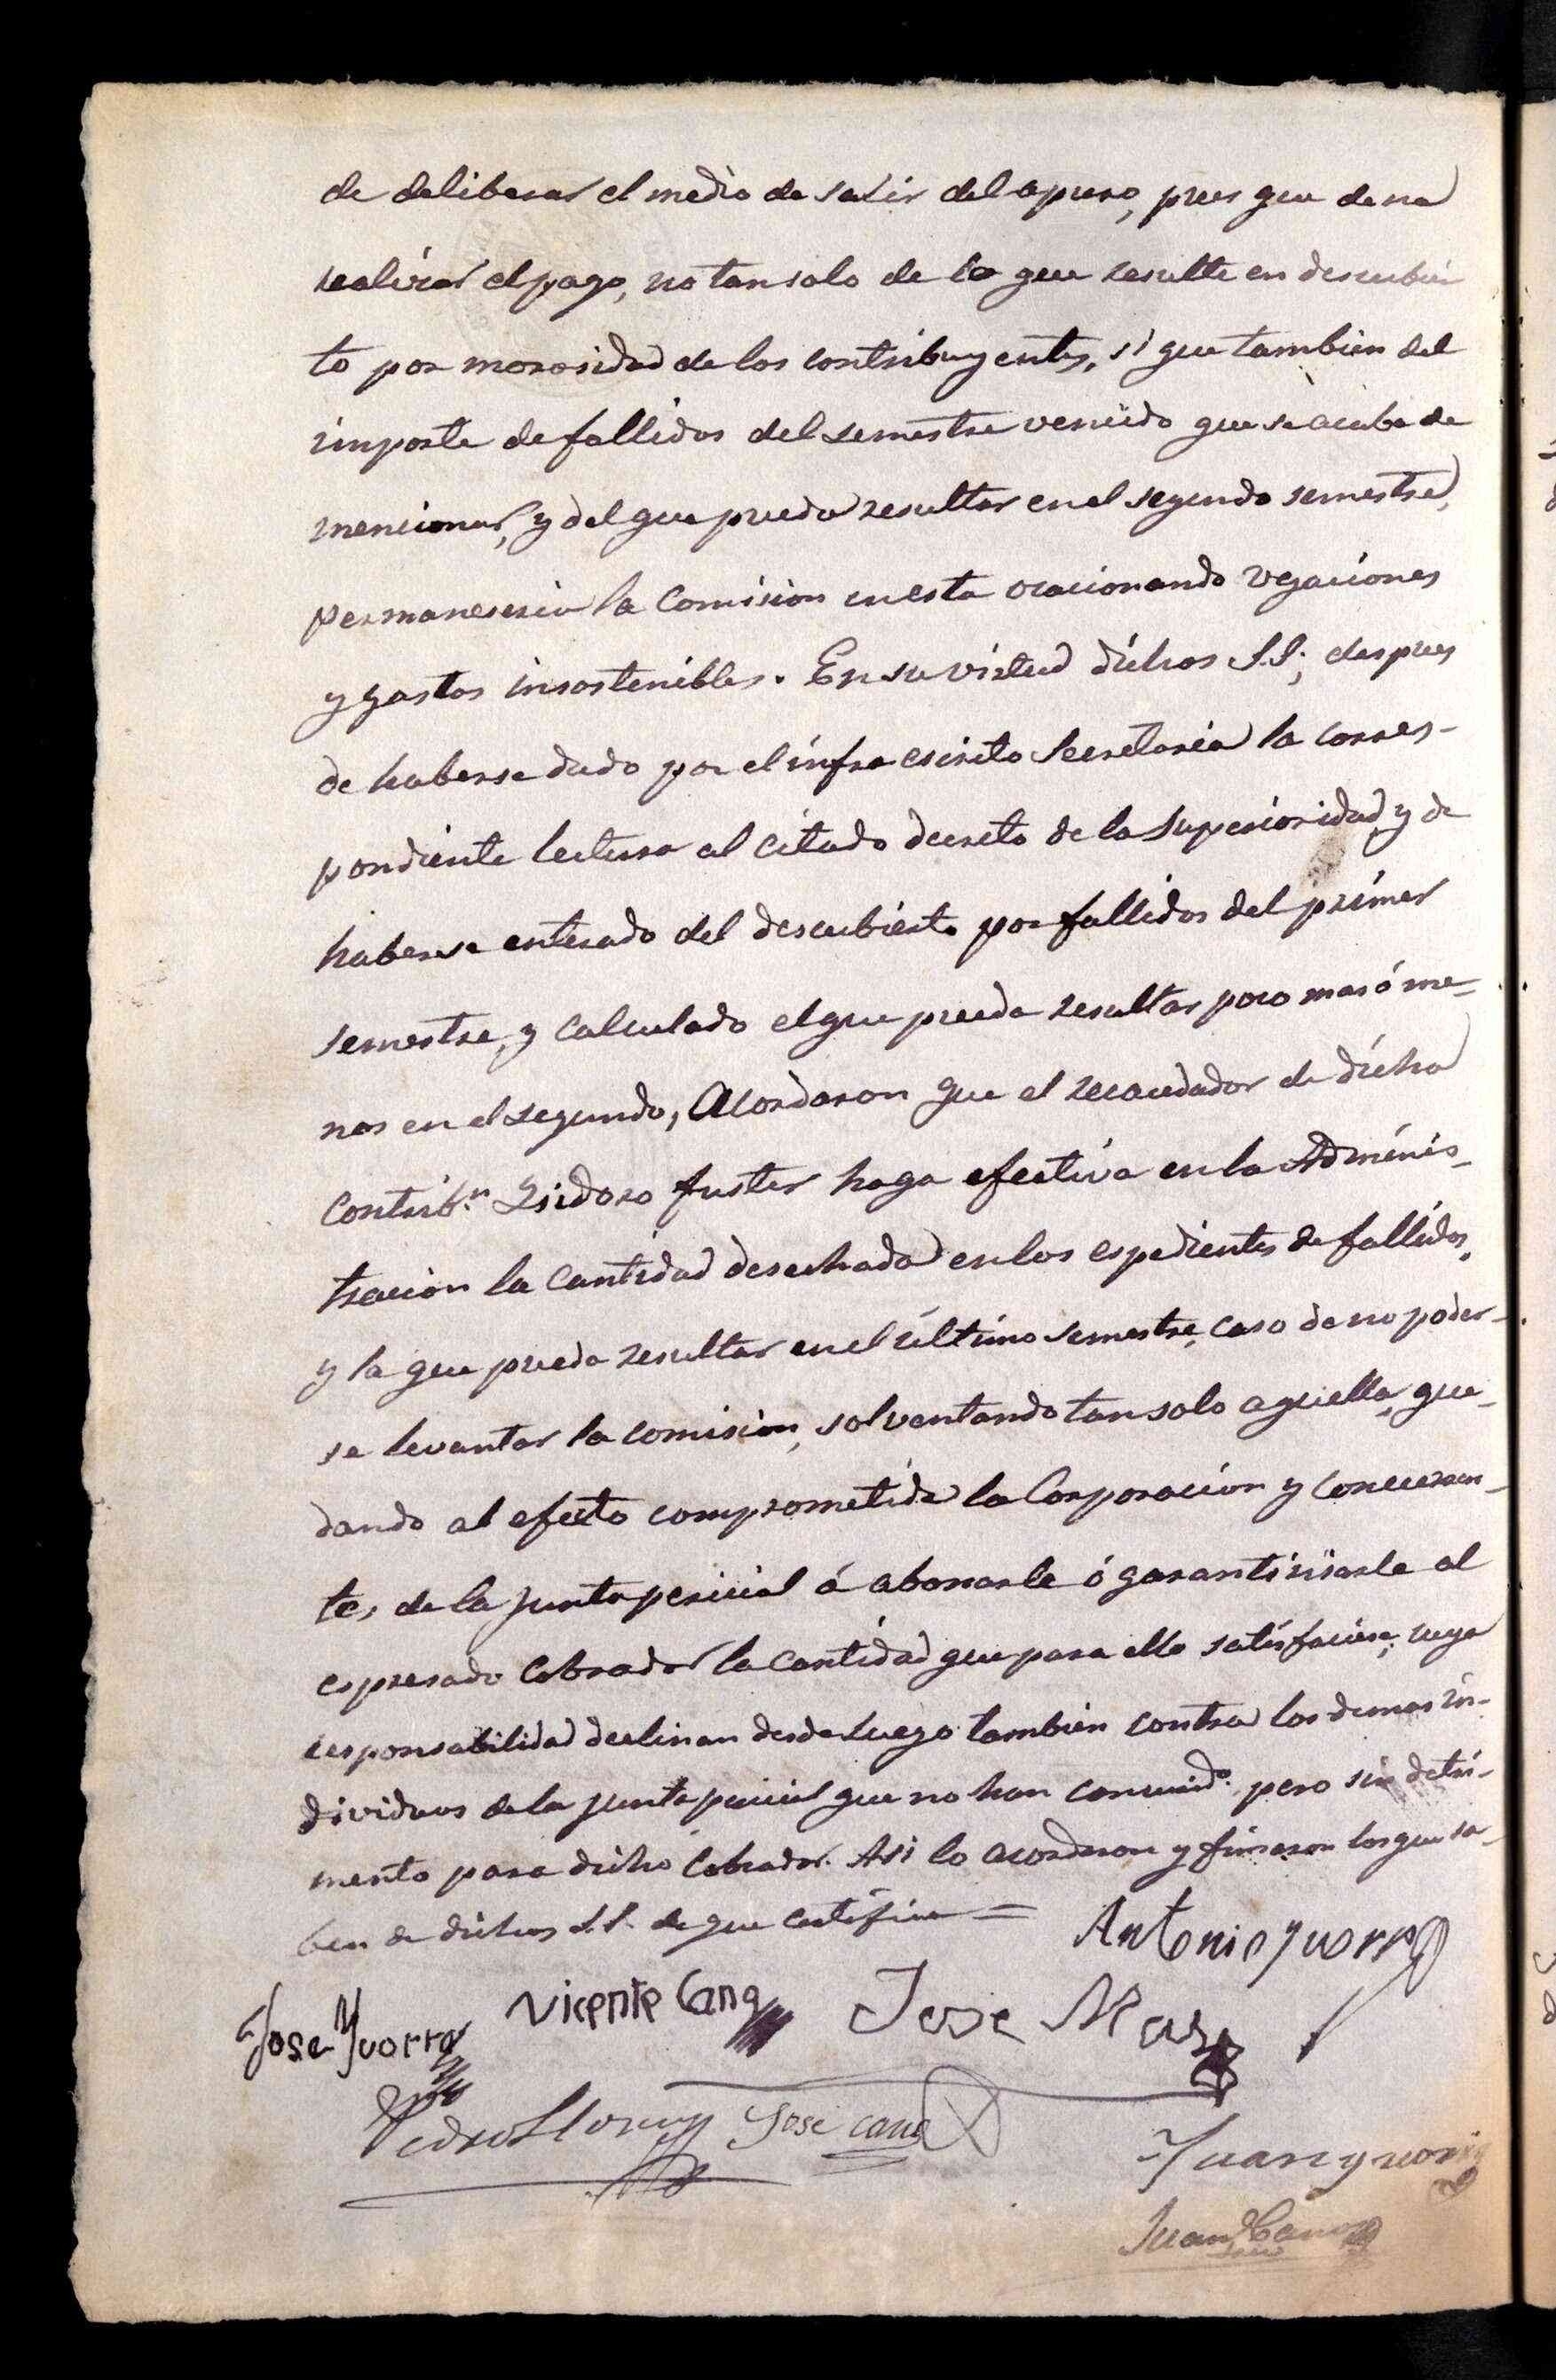 de deliberar el medio de salir del apuro, pues que de no
realizar el pago, no tan solo de lo que resulte en descubier
to por morosidad de los contribuyentes, si que tambien del
importe de fallidos del semestre vencido que se acaba de
mencionar, y del que pueda resultar en el segundo semestre,
permaneseria la Comision en esta ocacionando vejaciones
y gastos insostenibles. En su virtud dichos S.S; despues
de haberse dado por el infraescrito Secretario la corres-
pondiente lectura al citado decreto de la Superioridad, y de
haberse enterado del descubierto por fallidos del primer
semestre, y calculado el que pueda resultar poco mas ó me-
nos en el segundo, Acordaron que el recaudador de dicha
Contrib.n Isidoro Fuster haga efectiva en la Adminis-
tracion la cantidad desechada en los espedientes de fallidos,
y la que pueda resultar en el último semestre, caso de no poder-
se levantar la comision, solventando tan solo aquella, que-
dando al efecto comprometida la Corporacion y concurren-
tes de la junta pericial á abonarle ó garantisiarle al
espresado Cobrador la cantidad que para ello satisfaciere; cuya
responsabilidad declinan desde luego tambien contra los demas in-
dividuos de la junta pericial que no han concurrido. pero sin detri-
mento para dicho Cobrador. Asi lo acordaron y firmaron los que sa-
ben de dichos S.S. de que certifico =
Antonio Yvorra
Jose Yvorra Vicente Cano Jose Mas
Pedro Llorens Jose Cano
Juan Yvorra
Juan Cano